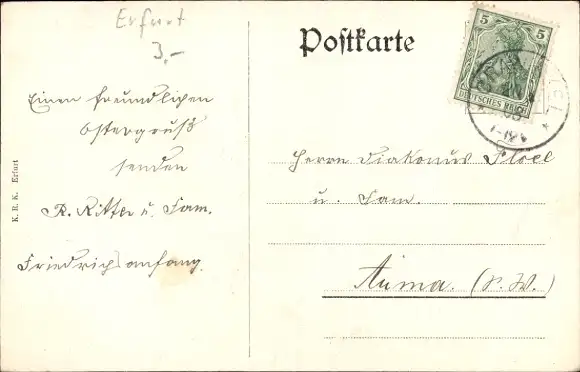 Erfurt
3,-
Postkarte
5
DEUTSCHES REICH
Einen freundlichen
Ostergruß
senden
R. Ritter u. Fam.
Friedrichsanfang.
Herrn Diakonus Ploel
u. Fam.
Auma. (S. W.)
K. R. K. Erfurt